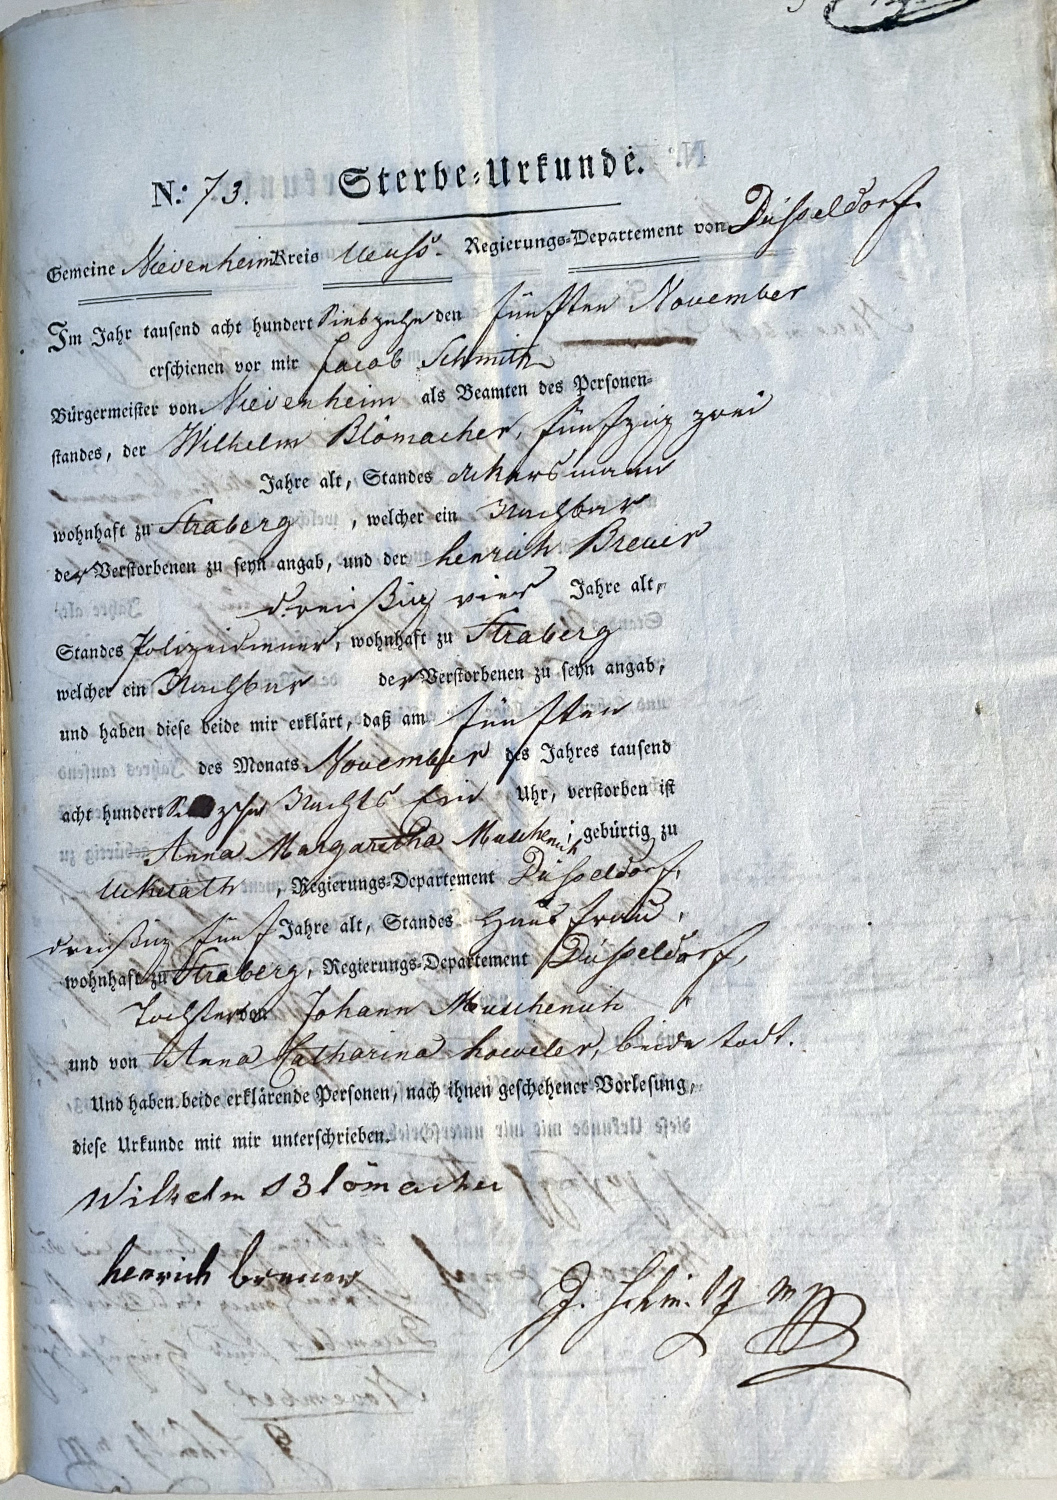 N: 73. Sterbe-Urkunde.
Gemeine Nievenheim Kreis Neuss. Regierungs-Departement von Düsseldorf.
Im Jahr tausend acht hundert Siebzehn den fünften November
erschienen vor mir Jacob Schmitz
Bürgermeister von Nievenheim als Beamten des Personen-
standes, der Wilhelm Blömacher, fünfzig zwei
Jahre alt, Standes Ackersmann
wohnhaft zu Straberg, welcher ein Nachbar
der Verstorbenen zu seyn angab, und der henrich Breuer
dreißig vier Jahre alt,
Standes Polizeidiener, wohnhaft zu Straberg
welcher ein Nachbar der Verstorbenen zu seyn angab,
und haben diese beide mir erklärt, daß am fünften
des Monats November des Jahres tausend
acht hundert Siebzehn Nachts Ein Uhr, verstorben ist
Anna Margaretha Muschenich, gebürtig zu
Uckerath, Regierungs-Departement Düsseldorf,
dreißig fünf Jahre alt, Standes Hausfrau,
wohnhaft zu Straberg, Regierungs-Departement Düsseldorf,
Tochter von Johann Muschenich
und von Anna Catharina hoeveler, beide todt.
Und haben beide erklärende Personen, nach ihnen geschehener Vorlesung,
diese Urkunde mit mir unterschrieben.
Wilhelm Blömacher
henrich breuer
J. Schmitz